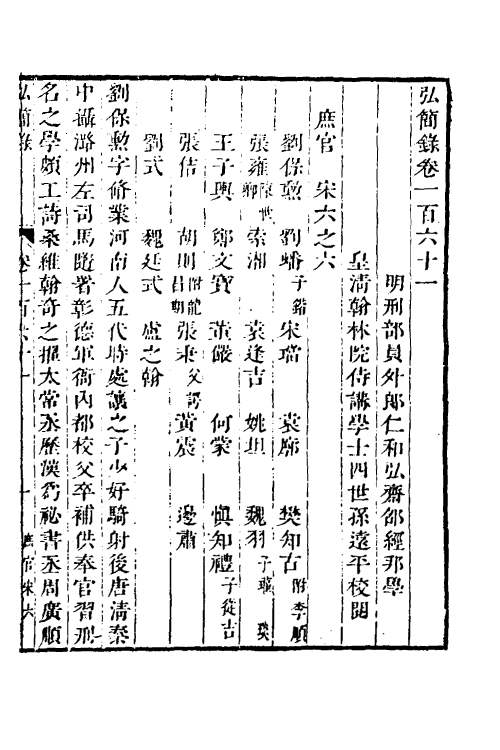 弘簡錄卷一百六十一
明刑部員外郎仁和弘齋邵經邦學
皇清翰林院侍講學士四世孫遠平校閱
庶官 宋六之六
劉保勲 劉蟠子鍇 宋璫 袁廓 樊知古附李順
張雍陳世卿 索湘 袁逢吉 姚坦 魏羽子瓘 琰
王子輿 鄭文寶 董儼 何蒙 慎知禮子從吉
張佶 胡則附龍昌朝 張秉父諤 黃震 邊肅
劉式 魏廷式 盧之翰
劉保勲字脩業河南人五代時處讓之子少好騎射後唐清泰
中攝潞州左司馬隨署彰德軍衙內都校父卒補供奉官習刑
名之學頗工詩桑維翰奇之擢太常丞歷漢為祕書丞周廣順
弘簡錄 卷一百六十一 一 庶官宋六